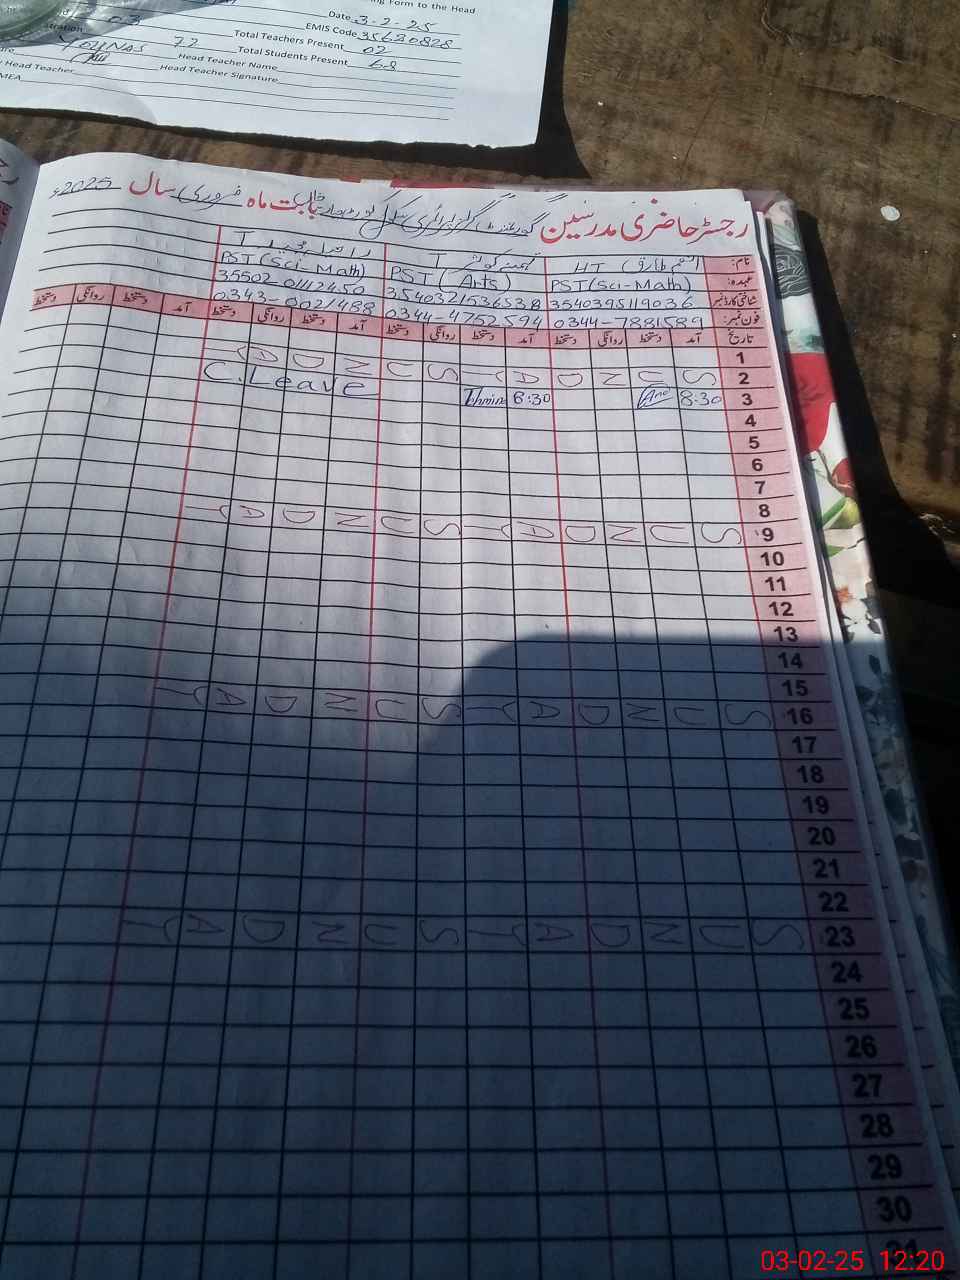 ing Form to the Head
Date 3-2-25
EMIS Code 35630828
Total Teachers Present 02
Younas 72 Total Students Present 68
Head Teacher Head Teacher Name
Head Teacher Signature
MEA
رجسٹر حاضری مدرسین گورنمنٹ گرلز پرائمری سکول بابت ماہ فروری سال 2025ء
نام: T T HT
عہدہ: PST(Sci-Math) PST (Arts) PST(Sci-Math)
شناختی کارڈ نمبر 3540395119036 3540321536538 35502-0112450
فون نمبر: 0344-7881589 0344-4752594 0343-0021488
تاریخ آمد دستخط روانگی دستخط آمد دستخط روانگی دستخط آمد دستخط روانگی دستخط آمد دستخط روانگی دستخط
1
2 SUNDAY SUNDAY
3 8:30 8:30 C.Leave
4
5
6
7
8
9 SUNDAY SUNDAY
10
11
12
13
14
15
16 SUNDAY SUNDAY
17
18
19
20
21
22
23 SUNDAY SUNDAY
24
25
26
27
28
29
30
31
03-02-25 12:20